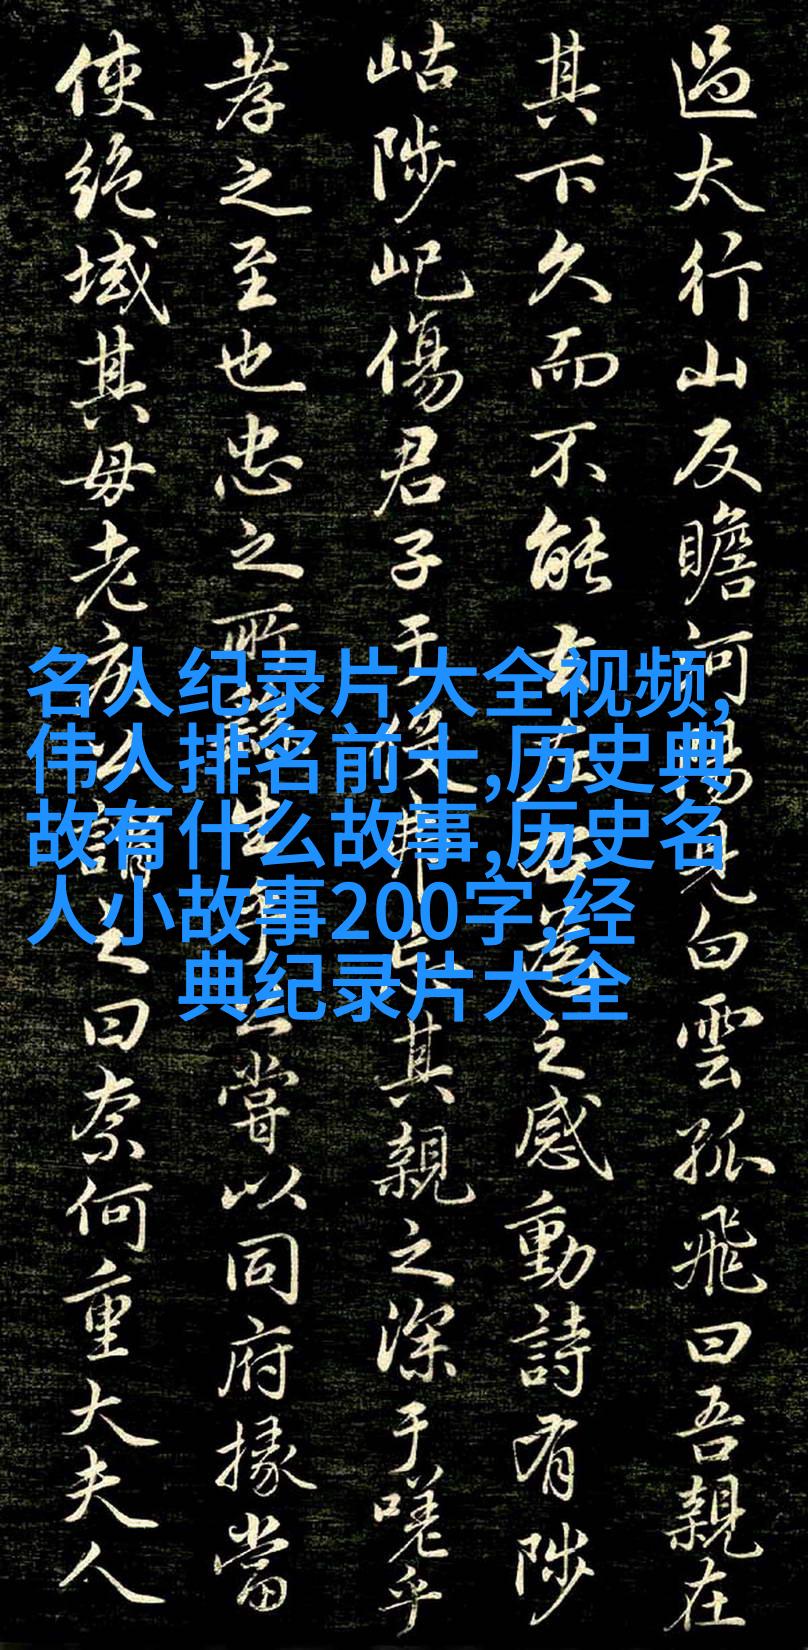 過太行山反瞻河陽見白雲孤飛曰吾親在
其下久而不能去左右為之感動詩有陟
岵陟屺傷君子于役弗忘其親之深于嗟乎
孝之至也忠之所繇生乎公嘗以同府掾當
使絕域其母老疾公謂之曰奈何重大夫人
名人纪录片大全视频,
伟人排名前十,历史典
故有什么故事,历史名
人小故事200字,经
典纪录片大全